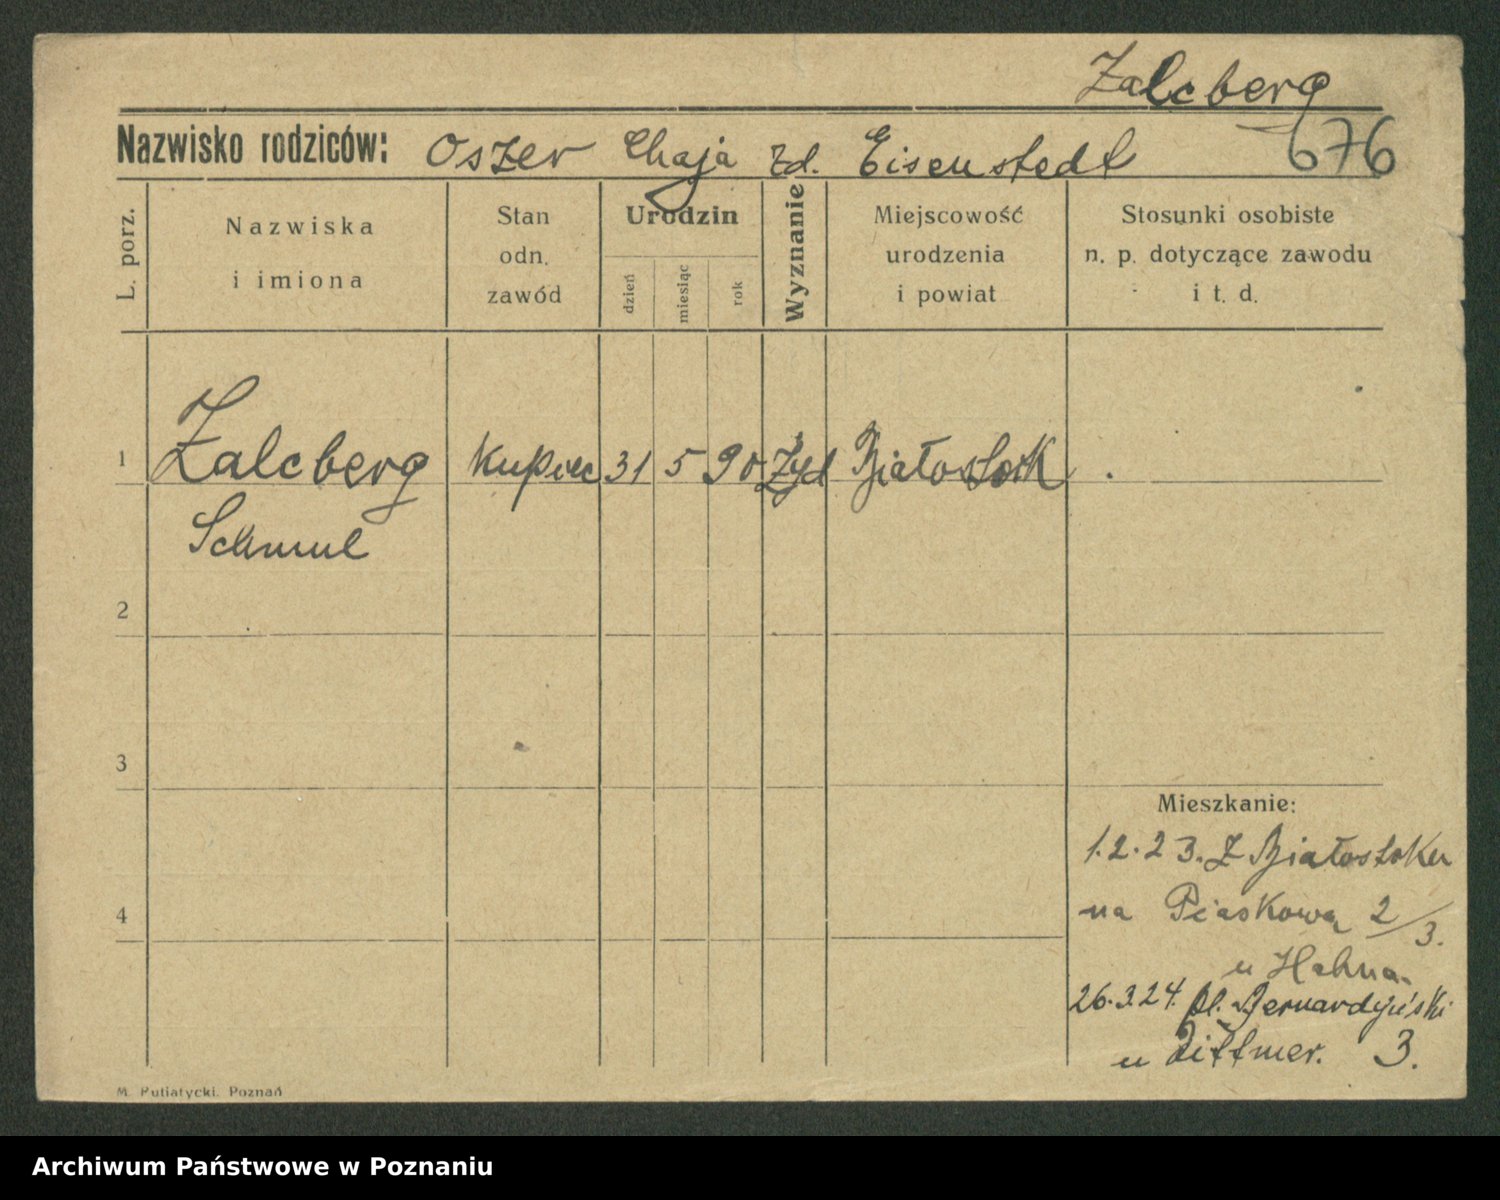 Zalcberg
Nazwisko rodziców: Oszer Chaja zd. Eisenstedt 676
L. porz.
Nazwiska
i imiona
Stan
odn.
zawód
Urodzin
dzień
miesiąc
rok
Wyznanie
Miejscowość
urodzenia
i powiat
Stosunki osobiste
n. p. dotyczące zawodu
i t. d.
1 Zalcberg kupiec 31 5 90 Żyd Białostok
Schmul
2
3
Mieszkanie:
1.2.23. Z Białostoku
4
na Piaskowa 2/3.
u Hahna
26.3.24. pl. Bernardyński
u Dittmer. 3.
M. Putiatycki. Poznań
Archiwum Państwowe w Poznaniu